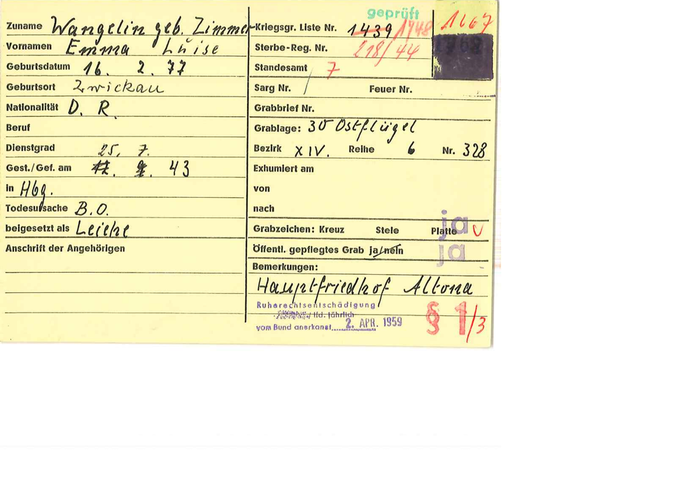 geprüft
1107
Zuname Wangelin geb. Zimmer-
Vornamen Emma Luise
Geburtsdatum 16. 2. 77
Geburtsort Zwickau
Nationalität D. R.
Beruf
Dienstgrad 25. 7.
Gest./Gef. am 43
in Hbg.
Todesursache B.O.
beigesetzt als Leiche
Anschrift der Angehörigen
Kriegsgr. Liste Nr. 1439/1948
Sterbe-Reg. Nr. 218/44
Standesamt 7
Sarg Nr. / Feuer Nr.
Grabbrief Nr.
Grablage: 30 Ostflügel
Bezirk XIV. Reihe 6 Nr. 328
Exhumiert am
von
nach
Grabzeichen: Kreuz Stele Platte ja
Öffentl. gepflegtes Grab ja/nein ja
Bemerkungen:
Hauptfriedhof Altona
Ruherechtsentschädigung
lfd. jährlich
vom Bund anerkannt 2. APR. 1959
§ 1/3